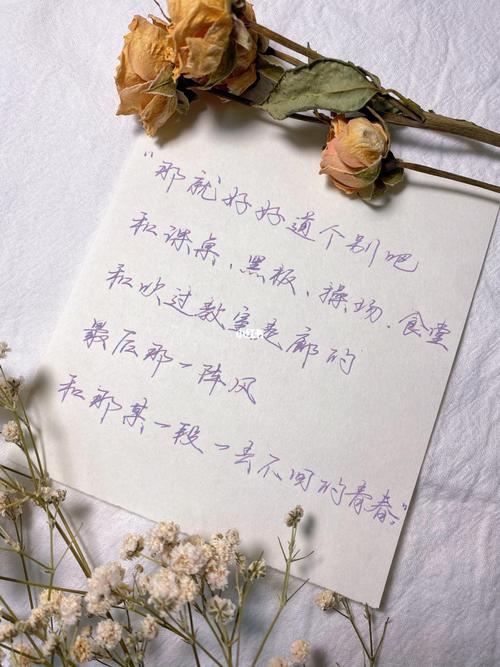 “那就好好道个别吧
和课桌、黑板、操场、食堂
和吹过教室走廊的
最后那一阵风
和那某一段一去不回的青春”